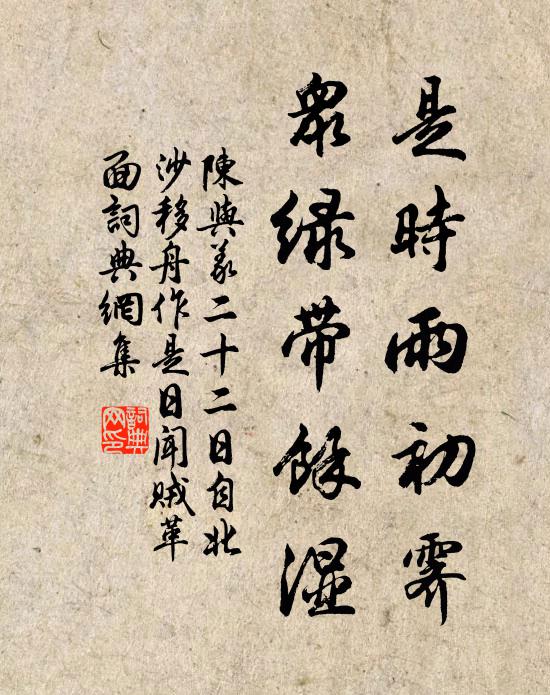 是時雨初霽
眾綠帶餘濕
陳與義二十二日自北
沙移舟作是日聞賊革
面詞典網集
詞典网印